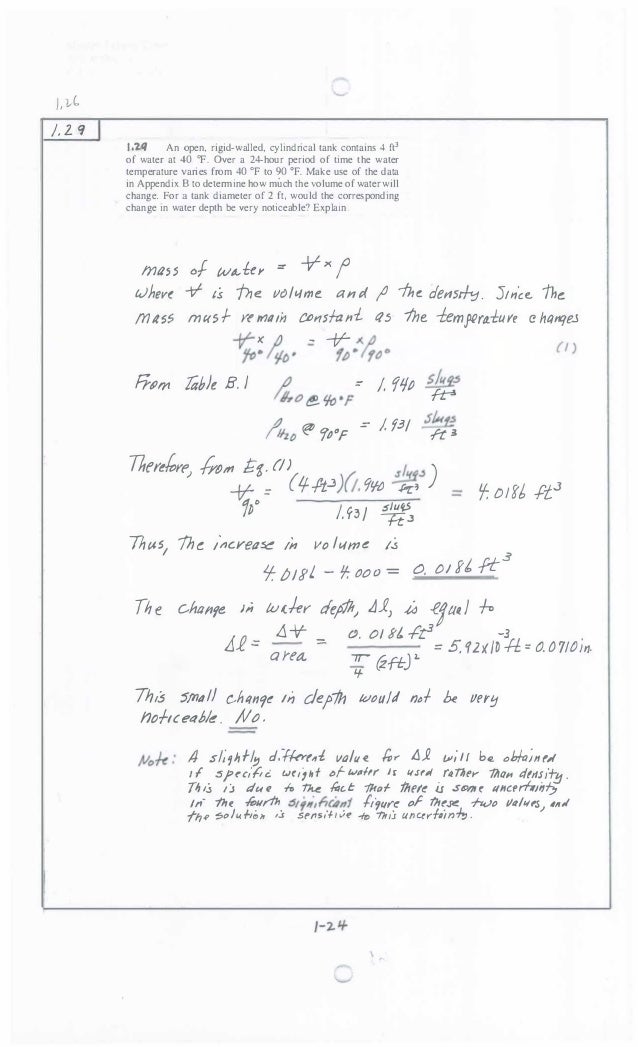 1.26
1.29
1.29 An open, rigid-walled, cylindrical tank contains 4 ft³
of water at 40 °F. Over a 24-hour period of time the water
temperature varies from 40 °F to 90 °F. Make use of the data
in Appendix B to determine how much the volume of water will
change. For a tank diameter of 2 ft, would the corresponding
change in water depth be very noticeable? Explain.
mass of water = V × ρ
where V is the volume and ρ the density. Since the
mass must remain constant as the temperature changes
V40° × ρ40° = V90° × ρ90° (1)
From Table B.1 ρH2O @ 40°F = 1.940 slugs/ft³
ρH2O @ 90°F = 1.931 slugs/ft³
Therefore, from Eq. (1)
V90° = (4 ft³)(1.940 slugs/ft³) / 1.931 slugs/ft³ = 4.0186 ft³
Thus, the increase in volume is
4.0186 – 4.000 = 0.0186 ft³
The change in water depth, Δl, is equal to
Δl = ΔV/area = 0.0186 ft³ / π/4 (2ft)² = 5.92×10⁻³ ft = 0.0710 in.
This small change in depth would not be very
noticeable. No.
Note: A slightly different value for Δl will be obtained
if specific weight of water is used rather than density.
This is due to the fact that there is some uncertainty
in the fourth significant figure of these two values, and
the solution is sensitive to this uncertainty.
1-24